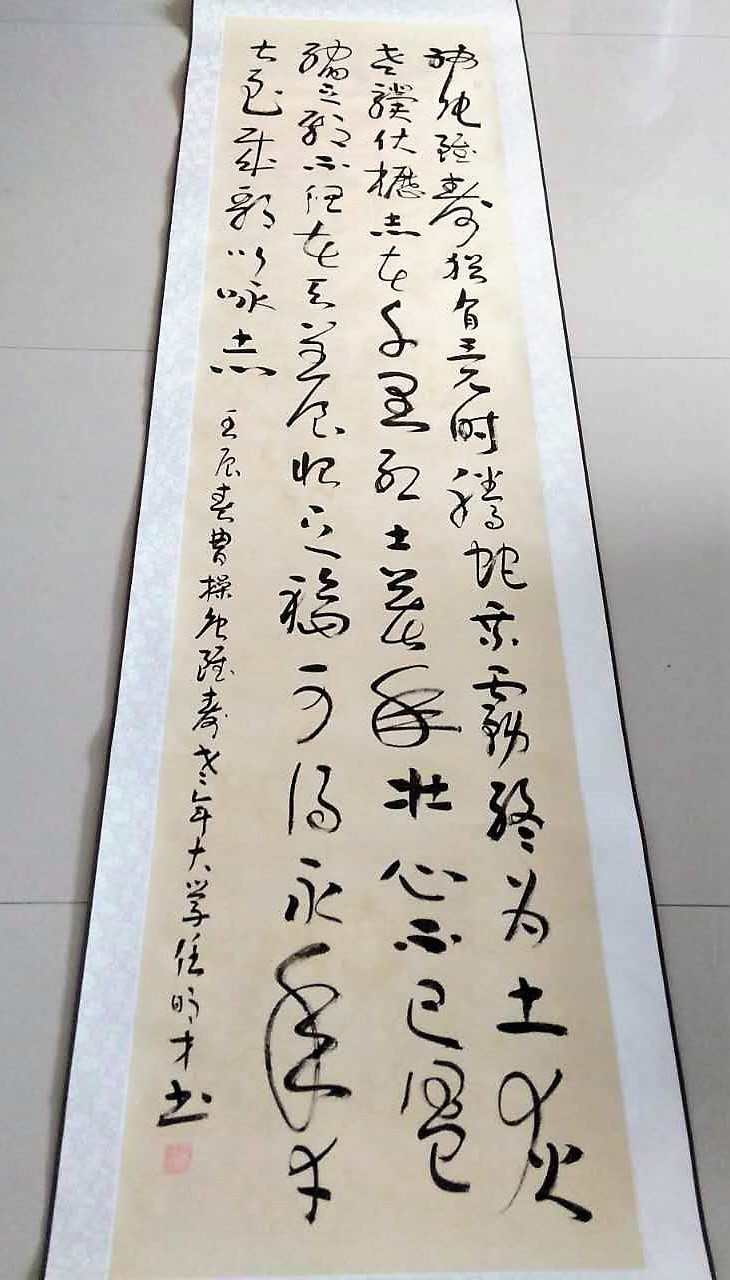 神龟雖壽猶有竟时騰蛇乘霧終为土灰
老驥伏櫪志在千里烈士暮年壮心不已盈
縮之期不但在天養怡之福可得永年幸
甚至哉歌以咏志
壬辰春曹操龟雖壽老年大学任明才书